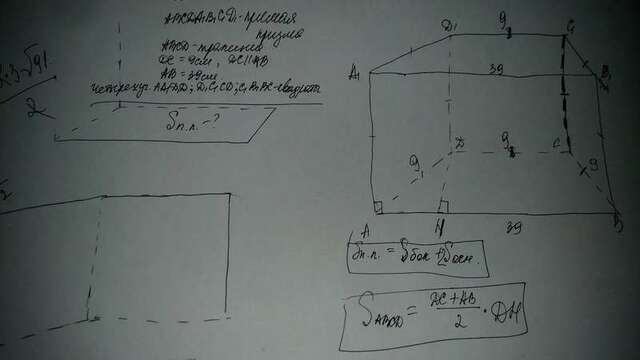 ABCDA₁B₁C₁D₁-прямая
призма
ABCD-трапеция
DC = 9см, DC||AB
AB = 39см
четырехуг. AA₁D₁D; D₁C₁CD; C₁B₁BC-квадраты
Sп.п. - ?
√91
2
D₁
9
C₁
A₁
39
B₁
D
9
C
9
9
A
H
39
B
Sп.п. = Sбок + 2Sосн.
S_ABCD = DC + AB / 2 · DH